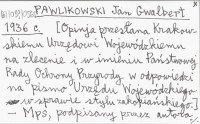 PAWLIKOWSKI Jan Gwalbert
1936 c. [Opinja przesłana Krakow-
skiemu Urzędowi Wojewódzkiemu
na zlecenie i w imieniu Państwowej
Rady Ochrony Przyrody w odpowiedzi
na pismo Urzędu Wojewódzkiego
w sprawie stylu zakopiańskiego]
— Mps, podpisany przez autora